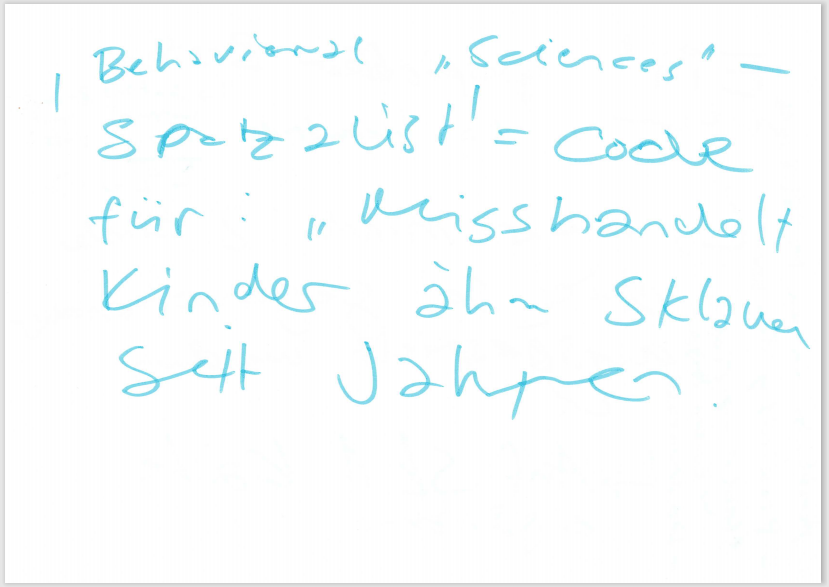 'Behavioral „Sciences" –
Spatzalist' = Code
für: „Misshandelt
Kinder äh Sklaven
seit Jahren.